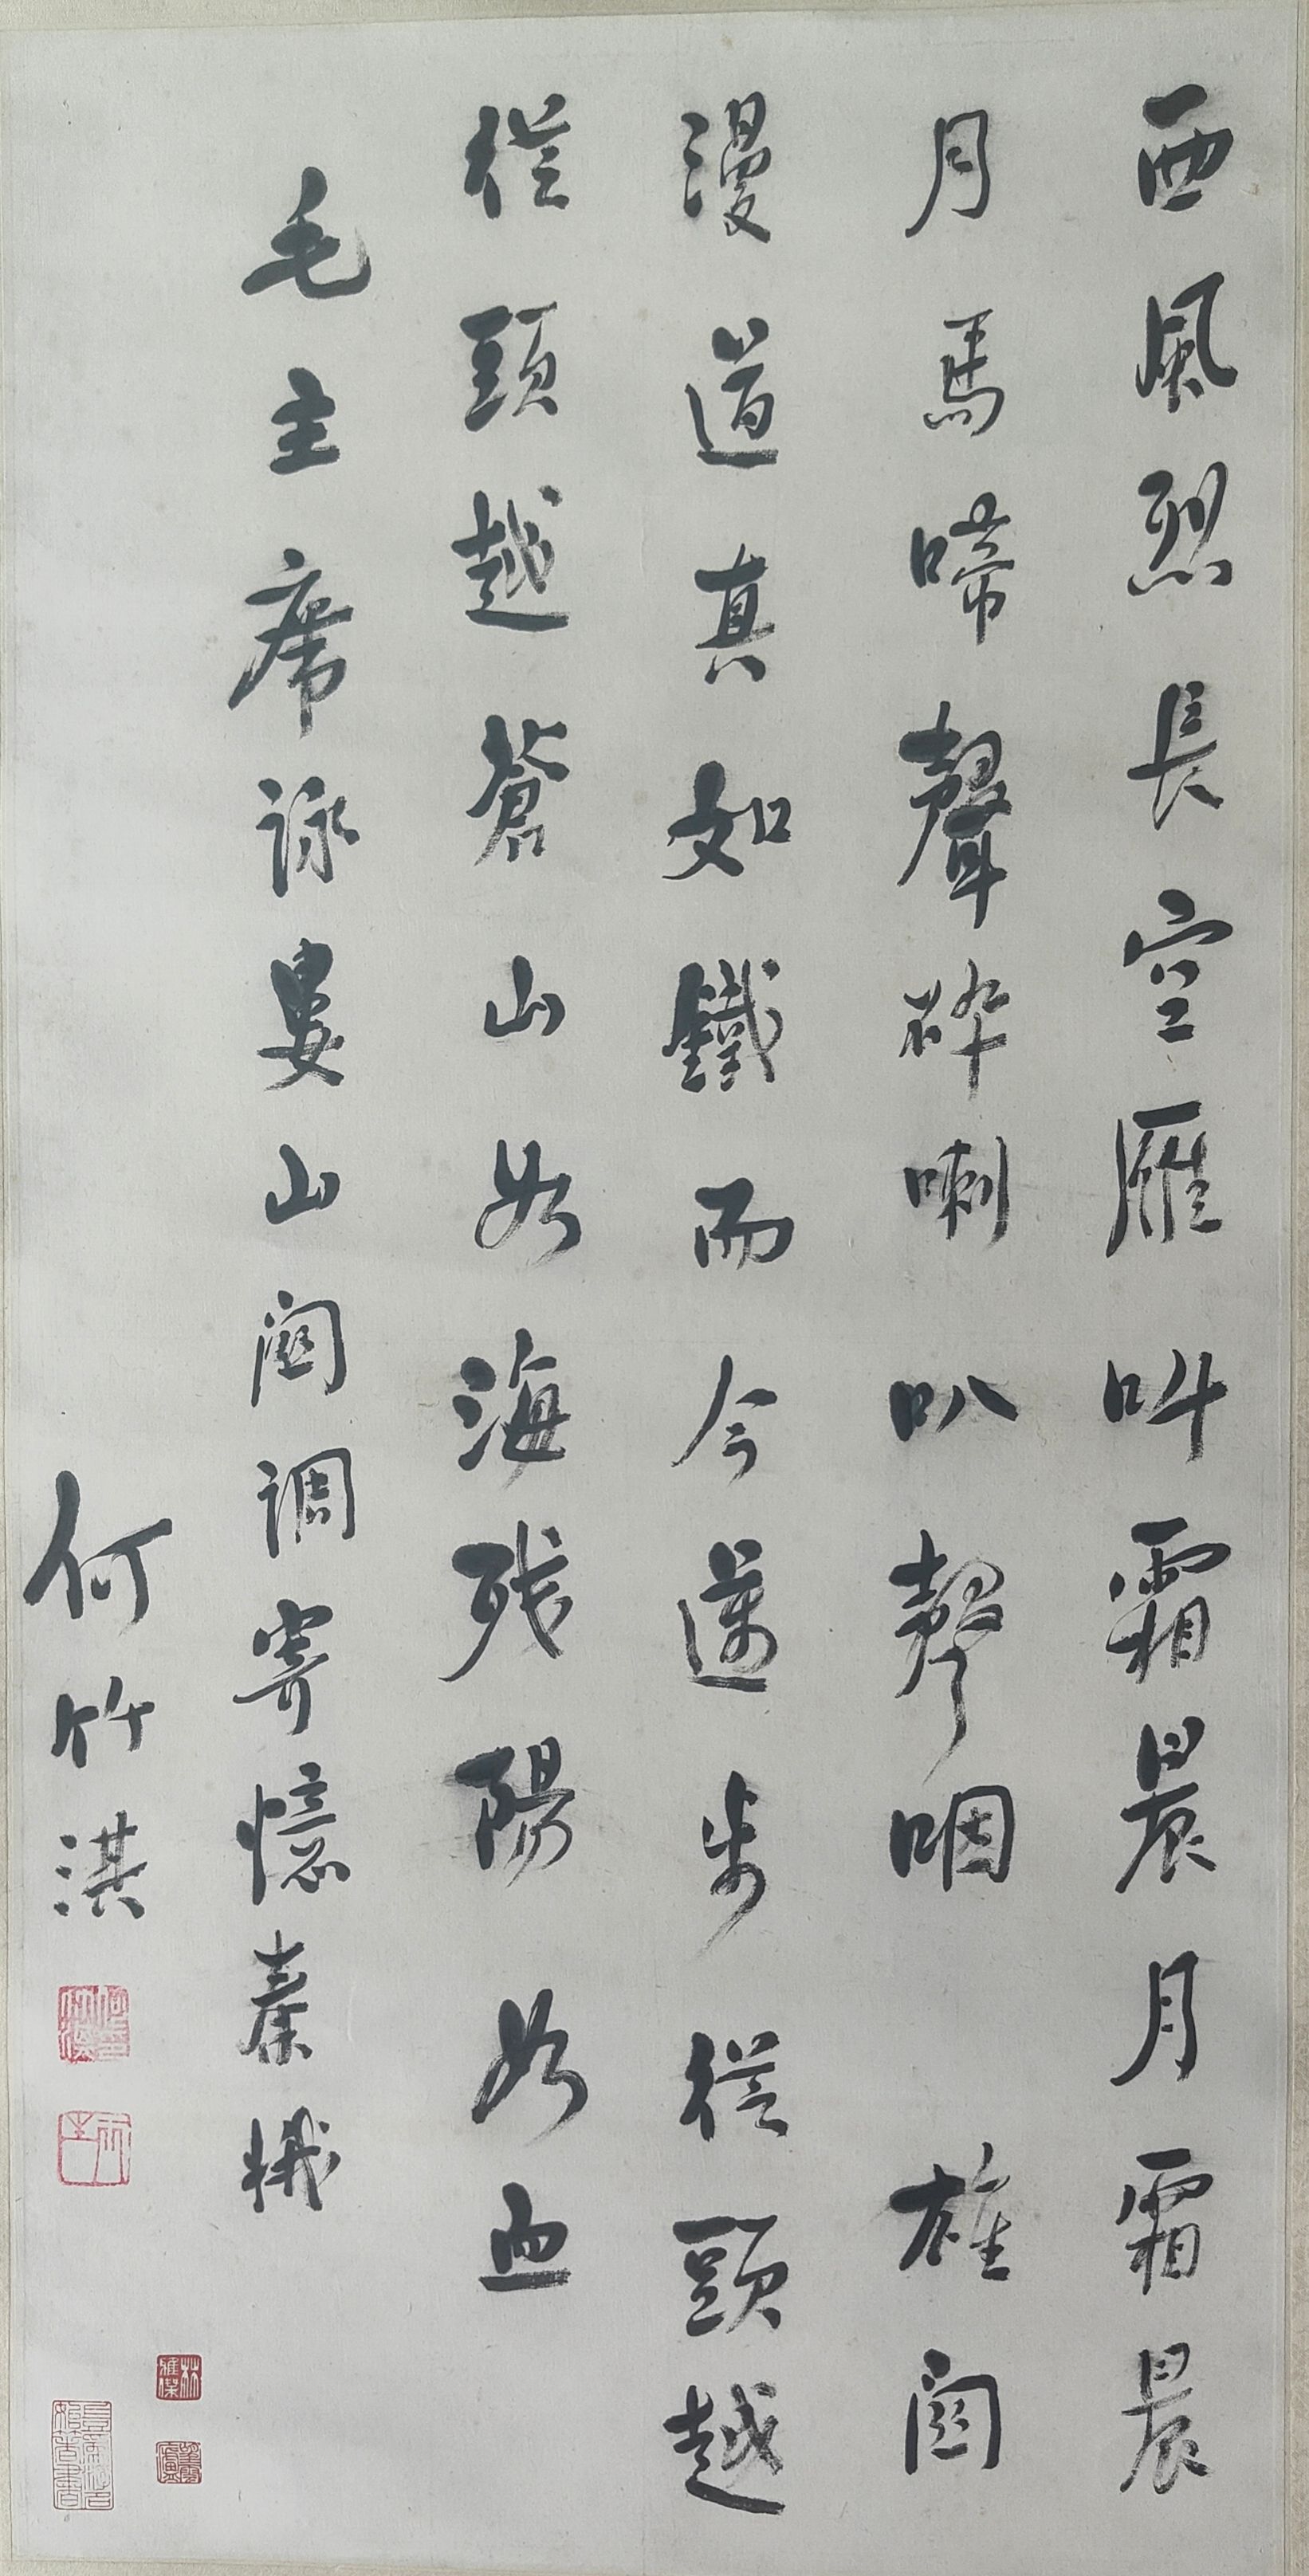 西風烈長空雁叫霜晨月霜晨
月馬啼聲碎喇叭聲咽雄關
漫道真如鐵而今邁步從頭越
從頭越蒼山如海殘陽如血
毛主席詠婁山關調寄憶秦娥
何竹淇
林雅傑